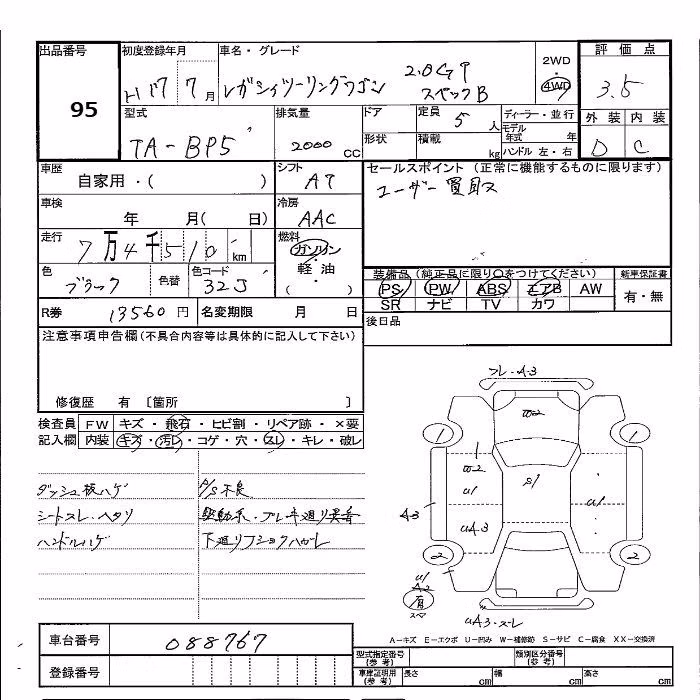 出品番号
95
初度登録年月
H17 7月
車名・グレード
レガシィツーリングワゴン 2.0GT スペックB
2WD
・
4WD
評価点
3.5
外装 内装
D C
型式
TA-BP5
排気量
2000 CC
ドア
形状
定員
5 人
積載
kg
ディーラー・並行
モデル年式 年
ハンドル 左・右
車歴
自家用・( )
シフト
AT
車検
年 月( 日)
冷房
AAC
走行
7万4千510 km
燃料
ガソリン
・
軽油
( )
色
ブラック
色替
色コード
32J
R券
13560 円
名変期限 月 日
セールスポイント(正常に機能するものに限ります)
ユーザー買取ス
装備品(純正品に限り○をつけてください)
新車保証書
PS PW ABS エアB AW
SR ナビ TV カワ
有・無
後日品
注意事項申告欄(不具合内容等は具体的に記入して下さい)
修復歴 有 〔箇所 〕
検査員
記入欄
FW キズ・飛石・ヒビ割・リペア跡・×要
内装 キズ・汚レ・コゲ・穴・スレ・キレ・破レ
ダッシュ板ハゲ
シートスレ・ヘタリ
ハンドルハゲ
P/S不良
駆動系・ブレーキ廻り異音
下廻りフショクハガレ
フレ-A3
W2
1
1
W2
U1
S1
U1
A3
UA3
2
2
U1
A2
UA3・スレ
A-キズ E-エクボ U-凹み W-補修跡 S-サビ C-腐食 XX-交換済
車台番号
088767
登録番号
型式指定番号
(参考)
類別区分番号
(参考)
車庫証明用
(参考)
長さ cm
幅 cm
高さ cm